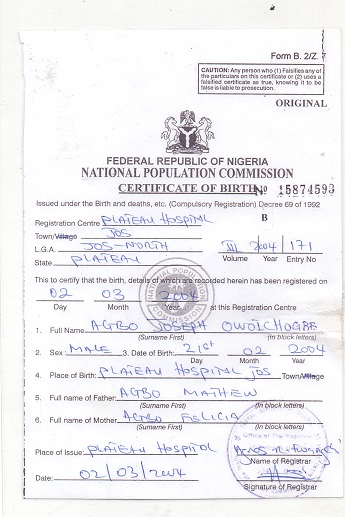 Form B. 2/Z. 7
CAUTION: Any person who (1) Falsifies any of
the particulars on this certificate or (2) uses a
falsified certificate as true, knowing it to be
false is liable to prosecution.
ORIGINAL
FEDERAL REPUBLIC OF NIGERIA
NATIONAL POPULATION COMMISSION
CERTIFICATE OF BIRTH No 15874593
Issued under the Birth and deaths, etc. (Compulsory Registration) Decree 69 of 1992
Registration Centre PLATEAU HOSPITAL B
Town/Village JOS
L.G.A. JOS-NORTH III 2004 171
State PLATEAU Volume Year Entry No
This to certify that the birth, details of which are recorded herein has been registered on
02 03 2004 at this Registration Centre
Day Month Year
NATIONAL POPULATION COMMISSION
1. Full Name AGBO JOSEPH
(Surname First) (In block letters)
2. Sex: MALE 3. Date of Birth: 21st 02 2004
Day Month Year
4. Place of Birth: PLATEAU HOSPITAL JOS Town/Village
5. Full name of Father: AGBO MATHEW
(Surname First) (In block letters)
6. Full name of Mother: AGBO FELICIA
(Surname First) (In block letters)
Place of Issue: PLATEAU HOSPITAL
Name of Registrar
Date: 02/03/2004
Signature of Registrar